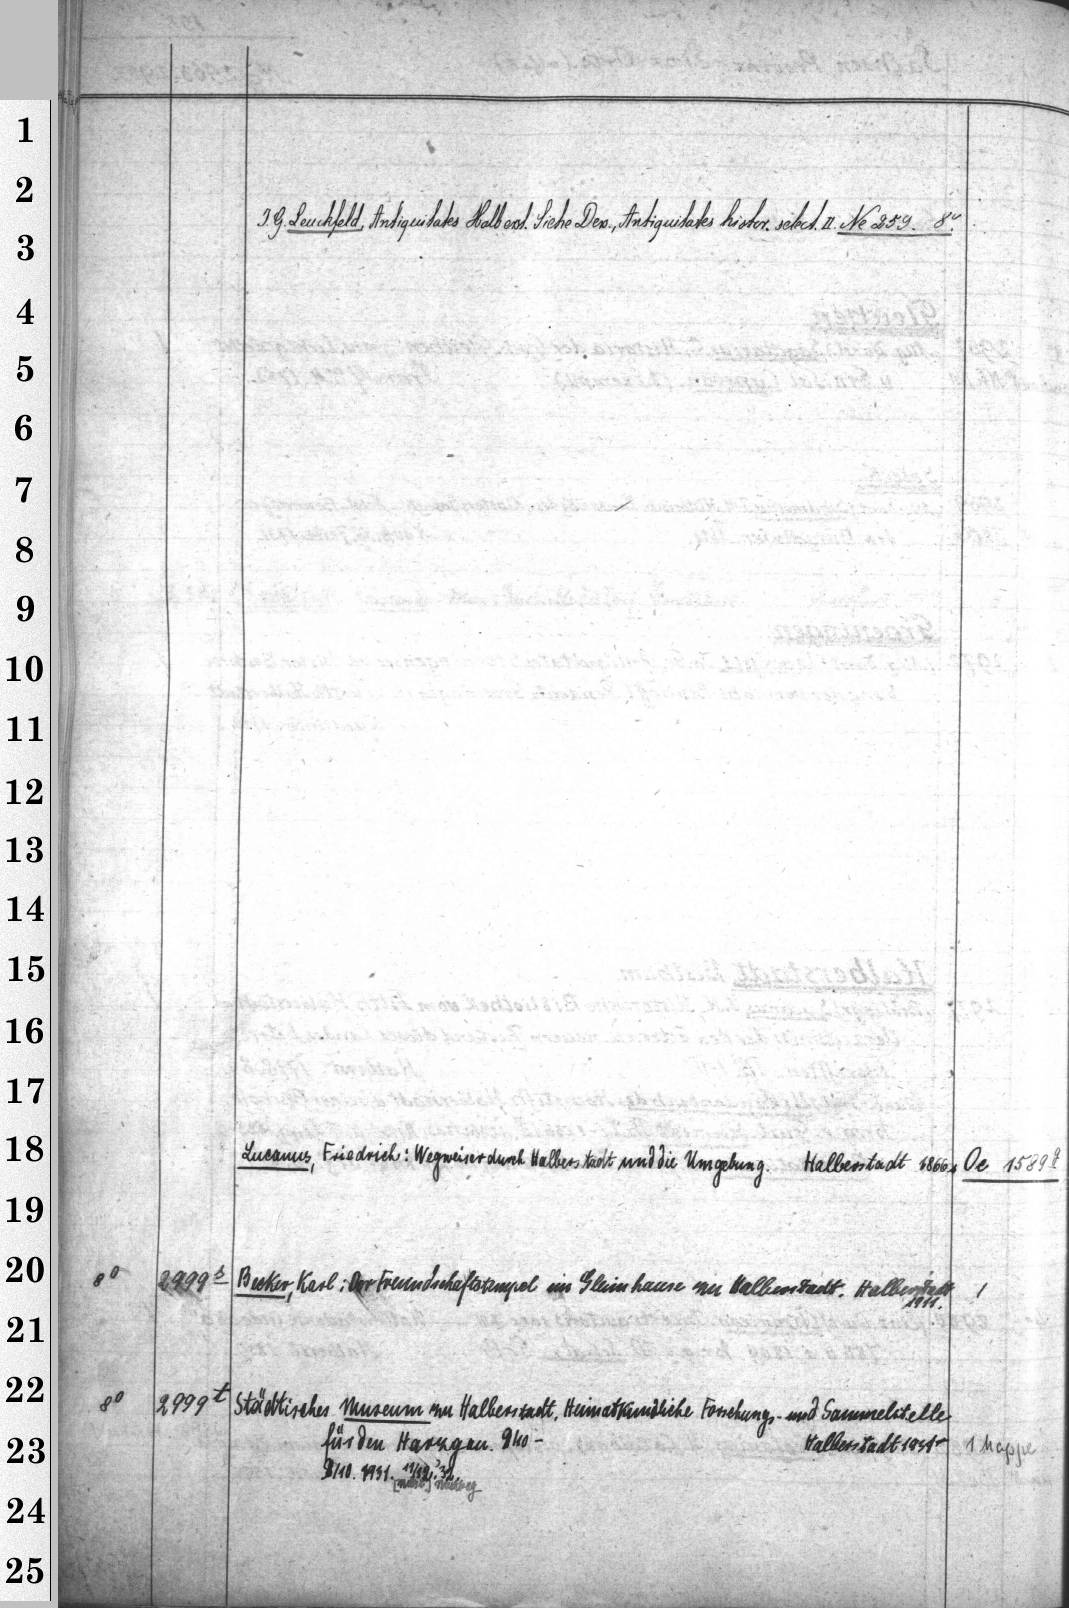 1
2
J. G. Leuckfeld, Antiquitates Halberst. Siehe Des., Antiquitates histor. select. II. Ne 259. 8°.
3
4
5
6
7
8
9
10
11
12
13
14
15
16
17
18 Lucanus, Friedrich: Wegweiser durch Halberstadt und die Umgebung. Halberstadt 1866. Oe 1589 q
19
20 8° 2999 s Becker, Karl: Der Freundschaftstempel im Gleimhause zu Halberstadt. Halberstadt 1
1911.
21
22 8° 2999 t Städtisches Museum zu Halberstadt, Heimatkundliche Forschungs- und Sammelstelle
23 für den Harzgau. 9/10 - Halberstadt 1931- 1 Mappe
9/10. 1931.
24
25